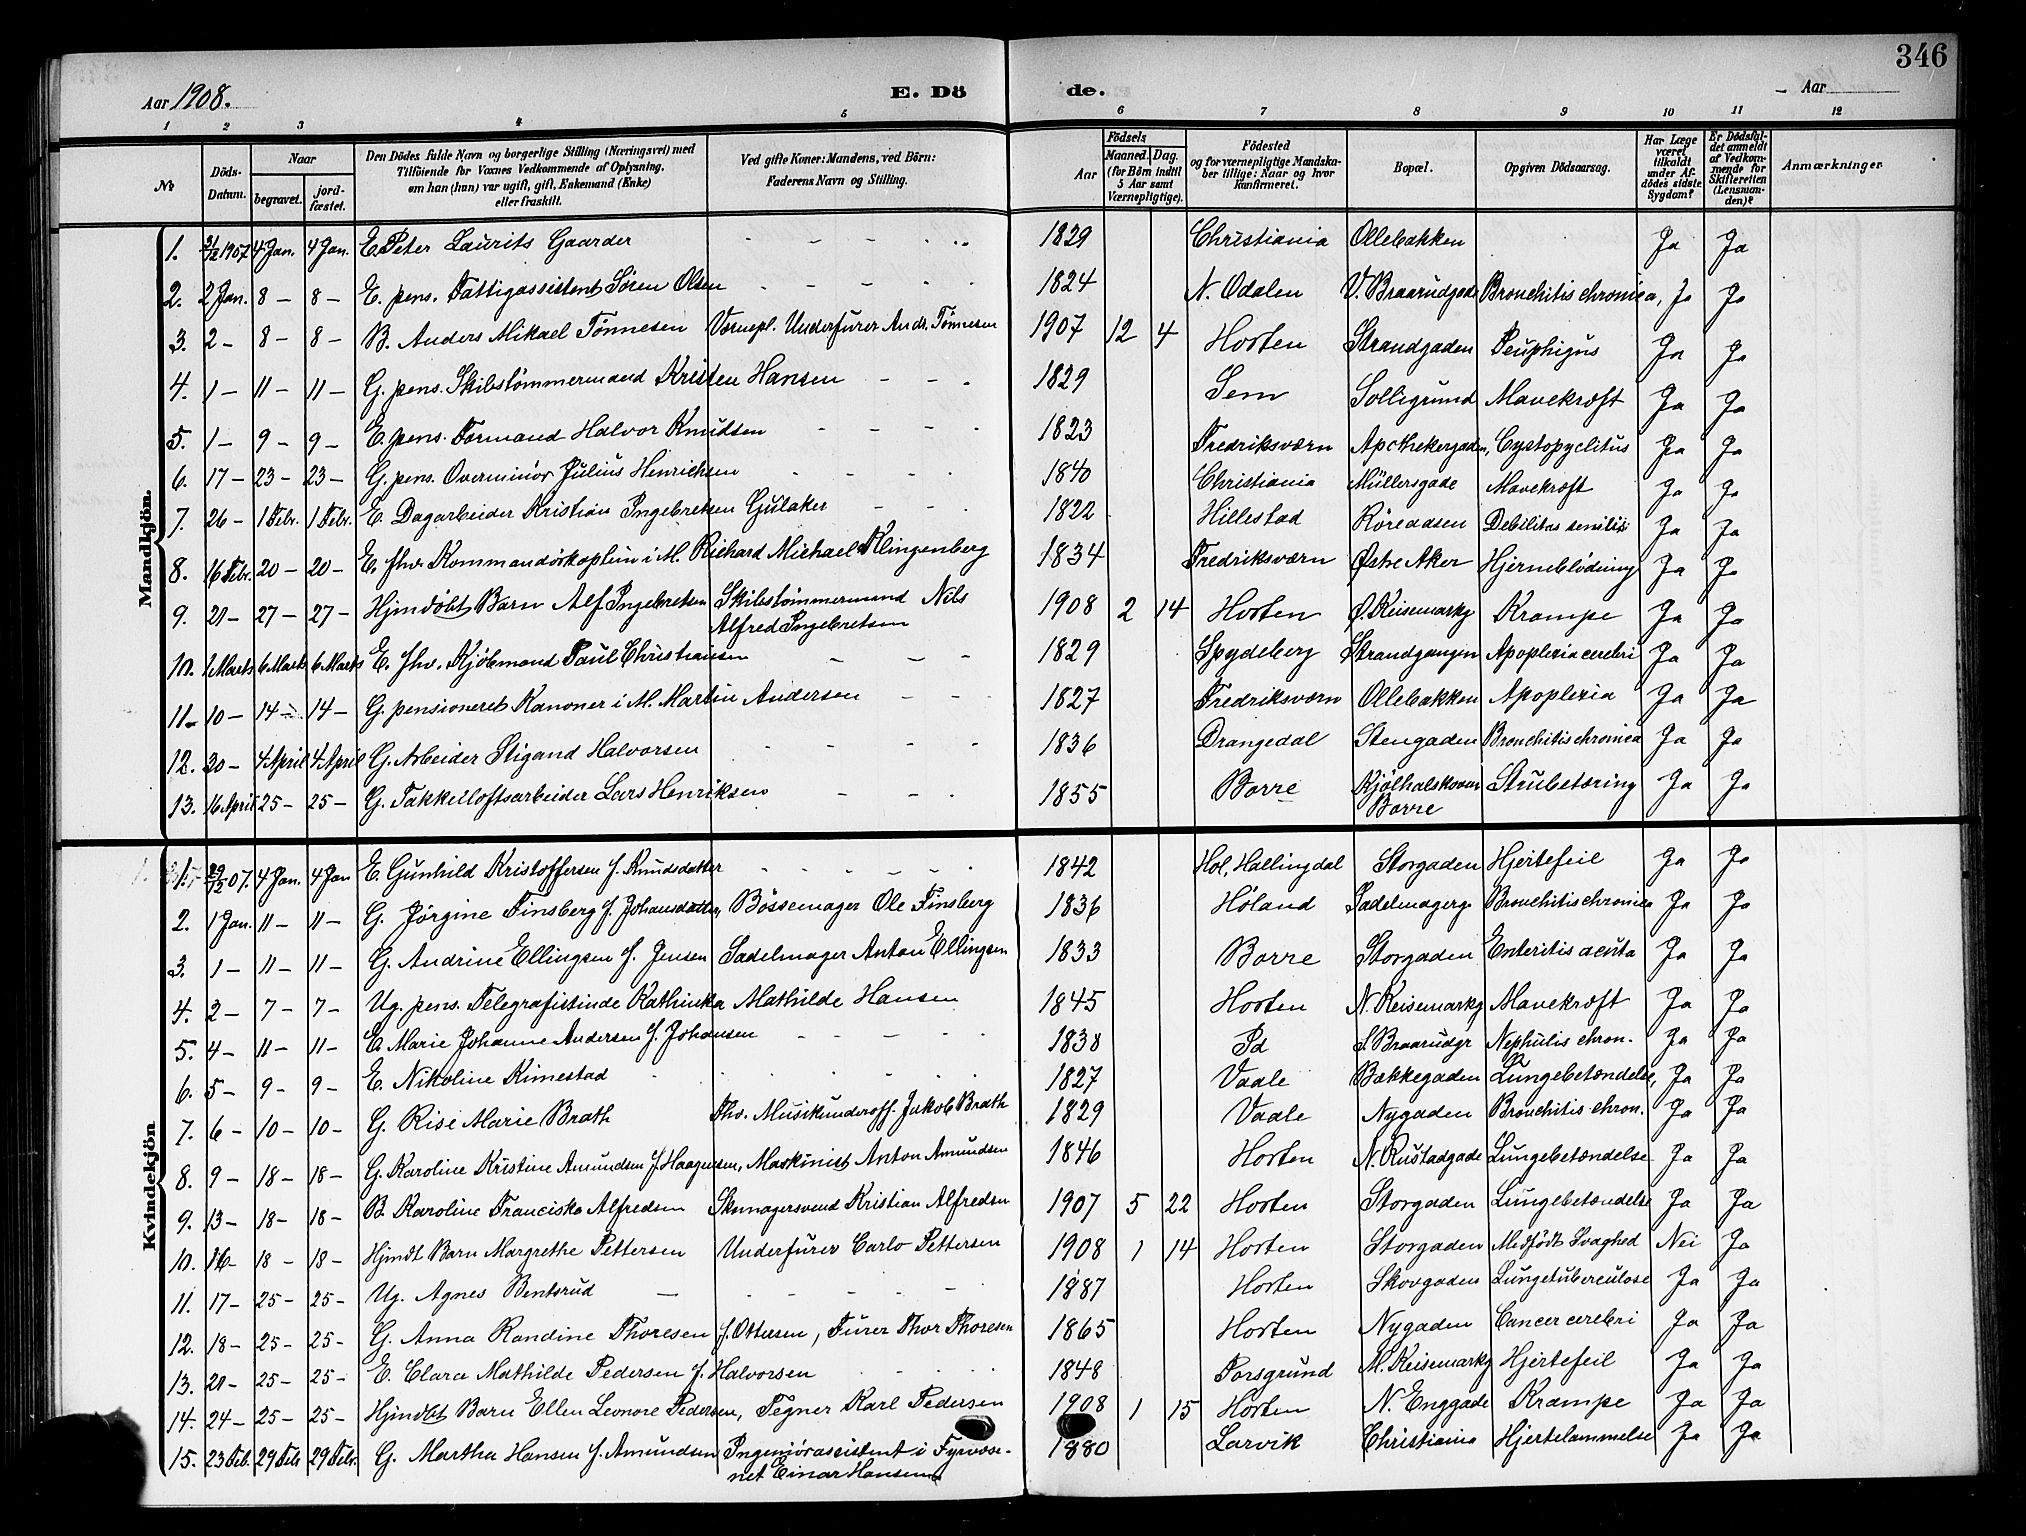 346
Aar 1908.
E. Dö
de.
Aar
1 2 3 4 5 6 7 8 9 10 11 12
No
Döds-Datum.
Naar
begravet.
jord-fæstet.
Den Dödes fulde Navn og borgerlige Stilling (Næringsvei) med
Tilföiende for Voxnes Vedkommende af Oplysning,
om han (hun) var ugift, gift, Enkemand (Enke)
eller fraskilt.
Ved gifte Koner: Mandens, ved Börn:
Faderens Navn og Stilling.
Födsels
Aar
Maaned. Dag.
(for Börn indtil
5 Aar samt
Værnepligtige).
Födested
og for værnepligtige Mandska-
ber tillige: Naar og hvor
konfirmeret.
Bopæl.
Opgiven Dödsaarsag.
Har Læge
været
tilkaldt
under Af-
dödes sidste
Sygdom?
Er Dödsfal-
det anmeldt
af Vedkom-
mende for
Skifteretten
(Lensman-
den)?
Anmærkninger
Mandkjön.
1. 31/12 1907 4 Jan. 4 Jan. E. Peter Laurits Gaarder - - - - - 1829 Christiania Ollebakken Ja Ja
2. 2 Jan. 8 - 8 - E. pens. Fattigassistent Sören Olsen - - - - 1824 N. Odalen V. Braarudgade Bronchitis chronica, Ja Ja
3. 2 - 8 - 8 - B. Anders Mikael Tönnesen Vernepl. Underfurer Andr. Tönnesen 1907 12 4 Horten Strandgaden Pemphigus Ja Ja
4. 1 - 11 - 11 - G. pens. Skibstömmermand Kristen Hansen - - - 1829 Sem Solligrund Mavekræft Ja Ja
5. 1 - 9 - 9 - E. pens. Formand Halvor Knudsen - - - - 1823 Fredriksværn Apothekergaden, Cystopyelitus Ja Ja
6. 17 - 23 - 23 - G. pens. Overminör Julius Henrichsen - - - 1840 Christiania Müllersgade Mavekræft Ja Ja
7. 26 - 1 Febr. 1 Febr. E. Dagarbeider Kristian Ingebretsen Gulaker - - - 1822 Hillestad Röreaasen Debilitas senilis Ja Ja
8. 16 Febr. 20 - 20 - E. fhv. Kommandörkaptein i M. Richard Michael Klingenberg 1834 Fredriksværn Östre Aker Hjerneblödning Ja Ja
9. 21 - 27 - 27 - Hjmdöbt Barn Alf Ingebretsen Skibstömmermand Nils
Alfred Ingebretsen 1908 2 14 Horten Ö. Keisemarkg Krampe Ja Ja
10. 1 Marts 6 Marts 6 Marts E. fhv. Kjöbmand Paul Christiansen - - - 1829 Spydeberg Strandgangen Apoplexia cerebri Ja Ja
11. 10 - 14 - 14 - G. pensioneret Kanoner i M. Martin Andersen - - - 1827 Fredriksværn Ollebakken Apoplexia Ja Ja
12. 30 - 4 April 4 April G. Arbeider Stigand Halvorsen - - - - 1836 Drangedal Stengaden Bronchitis chronica Ja Ja
13. 16 April 25 - 25 - G. Takkelloftsarbeider Lars Henriksen - - - 1855 Borre Kjölhalskoven
Borre Strubetæring Ja Ja
Kvindekjön
1. 29/12 07. 4 Jan. 4 Jan E. Gunhild Kristoffersen f. Knudsdatter - - - - - 1842 Hol, Hallingdal Storgaden Hjertefeil Ja Ja
2. 1 Jan. 11 - 11 - G. Jörgine Finsberg f. Johansdatter, Bössemager Ole Finsberg 1836 Höland Sadelmagerg Bronchitis chronica Ja Ja
3. 1 - 11 - 11 - G. Andrine Ellingsen f. Jensen Sadelmager Anton Ellingsen 1833 Borre Storgaden Enteritis acuta Ja Ja
4. 2 - 7 - 7 - Ug. pens. Telegrafistinde Kathinka Mathilde Hansen 1845 Horten N. Keisemarkg Mavekræft Ja Ja
5. 4 - 11 - 11 - E. Marie Johanne Andersen f. Johansen - - - - 1838 Id S. Braarudgr Nephritis chron. Ja Ja
6. 5 - 9 - 9 - E. Nikoline Kimestad - - - - - 1827 Vaale Bækkegaden Lungebetændelse, Ja Ja
7. 6 - 10 - 10 - G. Rise Marie Brath Fhv. Musikunderoff. Jakob Brath 1829 Vaale Nygaden Bronchitis chron. Ja Ja
8. 9 - 18 - 18 - G. Karoline Kristine Amundsen f. Haagensen, Maskinist Anton Amundsen 1846 Horten N. Rustadgade Lungebetændelse Ja Ja
9. 13 - 18 - 18 - B. Karoline Franciska Alfredsen Skomagersvend Kristian Alfredsen 1907 5 22 Horten Storgaden Lungebetændelse Ja Ja
10. 16 - 18 - 18 - Hjmdt Barn Margrethe Pettersen Underfurer Carlo Pettersen 1908 1 14 Horten Storgaden Medfödt Svaghed Nei Ja
11. 17 - 25 - 25 - Ug. Agnes Bentsrud - - - - - 1887 Horten Skovgaden Lungetuberculose Ja Ja
12. 18 - 25 - 25 - G. Anna Randine Thoresen f. Ottersen, Furer Thor Thoresen 1865 Horten Nygaden Cancer cerebri Ja Ja
13. 21 - 25 - 25 - E. Clara Mathilde Pedersen f. Halvorsen - - - 1848 Porsgrund M. Keisemarkg Hjertefeil Ja Ja
14. 24 - 25 - 25 - Hjmdöbt Barn Ellen Leonore Pedersen, Tegner Karl Pedersen 1908 1 15 Horten N. Enggade Krampe Ja Ja
15. 23 Feb. 29 Feb 29 Febr. G. Martha Hansen f. Amundsen Ingeniörassistent i Fyrvæse-
net Einar Hansen 1880 Larvik Christiania Hjertelammelse Ja Ja